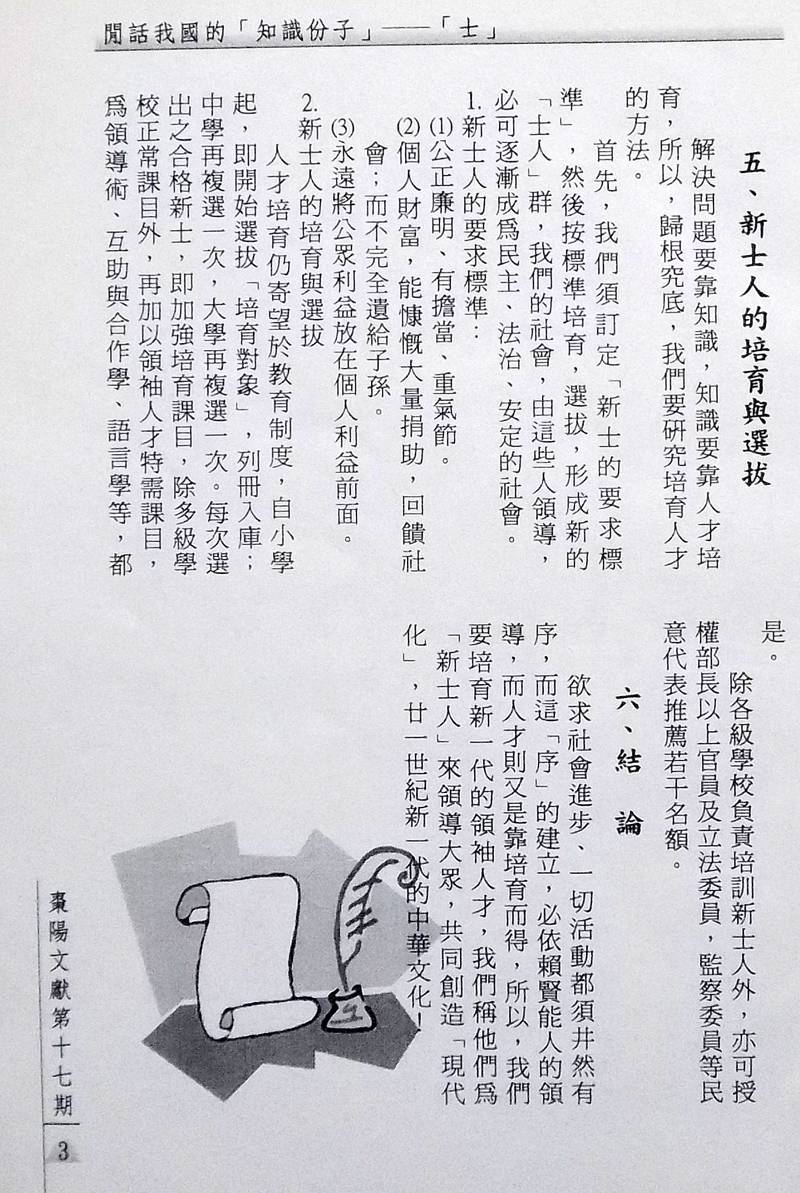 閒話我國的「知識份子」——「士」
五、新士人的培育與選拔
解決問題要靠知識，知識要靠人才培
育，所以，歸根究底，我們要研究培育人才
的方法。
首先，我們須訂定「新士的要求標
準」，然後按標準培育，選拔，形成新的
「士人」群，我們的社會，由這些人領導，
必可逐漸成爲民主、法治、安定的社會。
1.新士人的要求標準：
⑴公正廉明、有擔當、重氣節。
⑵個人財富，能慷慨大量捐助，回饋社
會；而不完全遺給子孫。
⑶永遠將公眾利益放在個人利益前面。
2.新士人的培育與選拔
人才培育仍寄望於教育制度，自小學
起，即開始選拔「培育對象」，列冊入庫；
中學再複選一次，大學再複選一次。每次選
出之合格新士，即加強培育課目，除多級學
校正常課目外，再加以領袖人才特需課目，
爲領導術、互助與合作學、語言學等，都
是。
除各級學校負責培訓新士人外，亦可授
權部長以上官員及立法委員，監察委員等民
意代表推薦若干名額。
六、結論
欲求社會進步、一切活動都須井然有
序，而這「序」的建立，必依賴賢能人的領
導，而人才則又是靠培育而得，所以，我們
要培育新一代的領袖人才，我們稱他們爲
「新士人」來領導大眾，共同創造「現代
化」，廿一世紀新一代的中華文化！
棗陽文獻第十七期
3